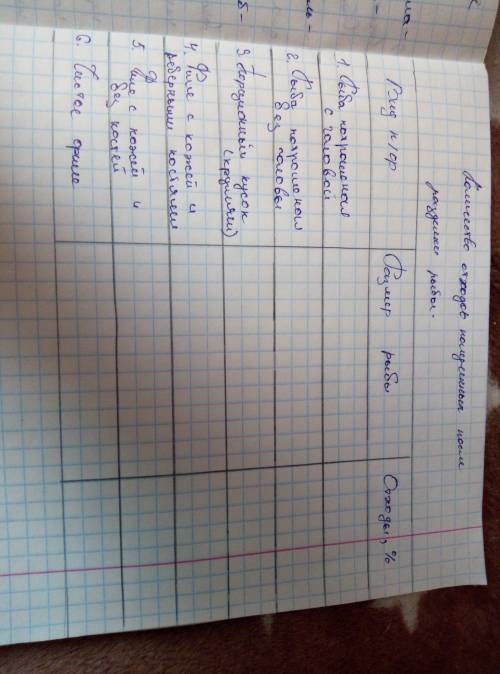 Количество отходов полученных после
разделки рыбы.
Вид п/ф
Размер рыбы
Отходы, %
1. Рыба потрошеная
с головой
2. Рыба потрошеная
без головы
3. Порционный кусок
(кругляши)
4. Филе с кожей и
реберными костями
5. Филе с кожей и
без костей
6. Чистое филе